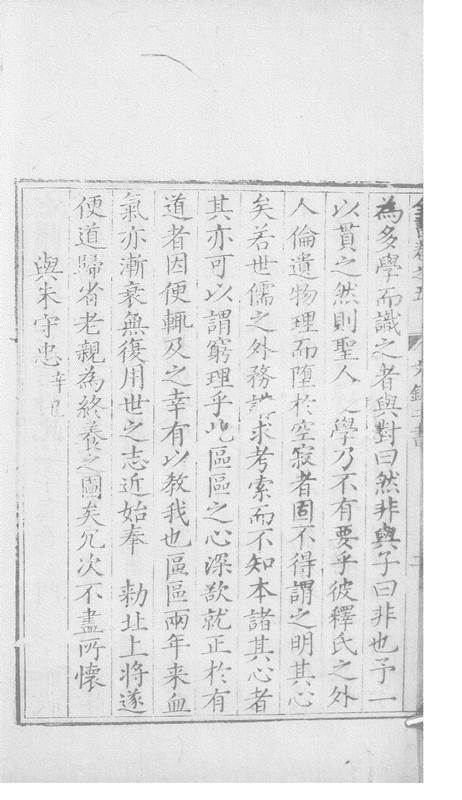 為多學而識之者與對曰然非與子曰非也予一
以貫之然則聖人之學乃不有要乎彼釋氏之外
人倫遺物理而墮於空寂者固不得謂之明其心
矣若世儒之外務講求考索而不知本諸其心者
其亦可以謂窮理乎此區區之心深欲就正於有
道者因便輒及之幸有以教我也區區兩年来血
氣亦漸衰無復用世之志近始奉 勑北上將遂
便道歸省老親為終養之圖矣冗次不盡所懷
與朱守忠辛巳